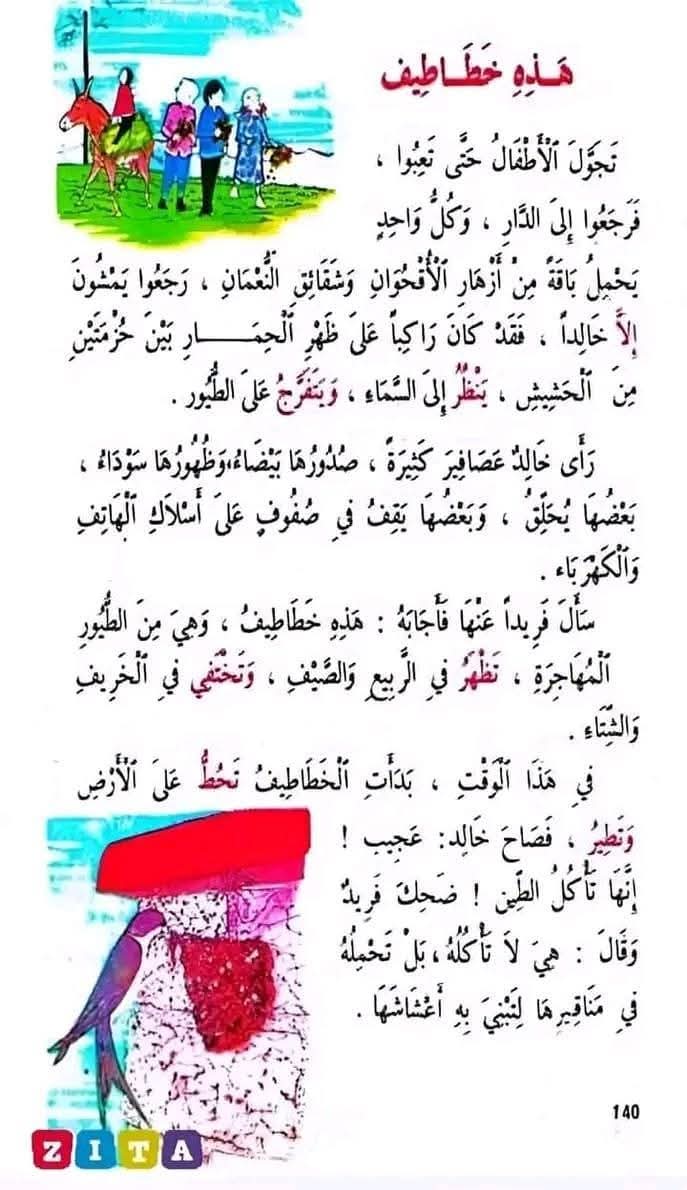 هَـذِهِ خَطَـاطِيف
تَجَوَّلَ ٱلْأَطْفَالُ حَتَّى تَعِبُوا ،
فَرَجَعُوا إِلَى الدَّارِ ، وَكُلُّ وَاحِدٍ
يَحْمِلُ بَاقَةً مِنْ أَزْهَارِ ٱلْأُقْحُوَانِ وَشَقَائِقِ النُّعْمَانِ ، رَجَعُوا يَمْشُونَ
إِلاَّ خَالِداً ، فَقَدْ كَانَ رَاكِباً عَلَى ظَهْرِ ٱلْحِمَـــــارِ بَيْنَ حُزْمَتَيْنِ
مِنَ ٱلْحَشِيشِ ، يَنْظُرُ إِلَى السَّمَاءِ ، وَيَتَفَرَّجُ عَلَى الطُّيُور .
رَأَى خَالِدٌ عَصَافِيرَ كَثِيرَةً ، صُدُورُهَا بَيْضَاءُ،وَظُهُورُهَا سَوْدَاءُ ،
بَعْضُهَا يُحَلِّقُ ، وَبَعْضُهَا يَقِفُ فِي صُفُوفٍ عَلَى أَسْلَاكِ ٱلْهَاتِفِ
وَٱلْكَهْرَبَاء .
سَأَلَ فَرِيداً عَنْهَا فَأَجَابَهُ : هَذِهِ خَطَاطِيفُ ، وَهِيَ مِنَ الطُّيُورِ
ٱلْمُهَاجِرَةِ ، تَظْهَرُ فِي الرَّبِيعِ وَالصَّيْفِ ، وَتَخْتَفِي فِي ٱلْخَرِيفِ
وَالشِّتَاءِ .
فِي هَذَا ٱلْوَقْتِ ، بَدَأَتِ ٱلْخَطَاطِيفُ تَحُطُّ عَلَى ٱلْأَرْضِ
وَتَطِيرُ ، فَصَاحَ خَالِد: عَجِيب !
إِنَّهَا تَأْكُلُ الطِّين ! ضَحِكَ فَرِيدٌ
وَقَالَ : هِيَ لَا تَأْكُلُهُ،بَلْ تَحْمِلُهُ
فِي مَنَاقِيرِهَا لِتَبْنِيَ بِهِ أَعْشَاشَهَا .
140
ZITA